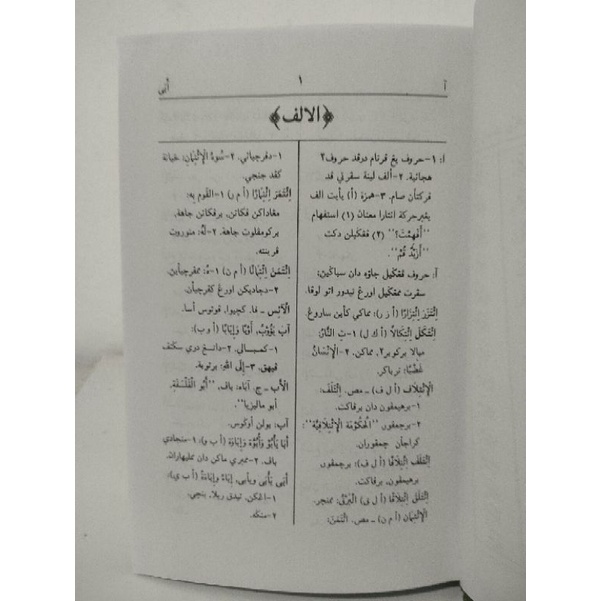 آ
١
أبى
﴿الالف﴾
أ: ١-حروف يغ فرتام درفد حروف٢
هجائية. ٢-ألف لينة سفرتي فد
فركتأن صام. ٣-همزة (أ) يأيت الف
يغبرحركة انتارا معنان (١) استفهام
"أَفَهِمْتَ؟" (٢) ڤڠݢيلن دكت
"أَزَيْدُ قُمْ".
آ: حروف ممڠݢيل جاؤه دان سباݢين:
سفرت ممڠݢيل اورڠ تيدور اتو لوفا.
اِئْتَزَرَ اِئْتِزَارًا (أ ز ر): مماكي كاين ساروڠ
اِئْتَكَلَ اِئْتِكَالاً (أ ك ل) ١-تِ النَّارُ:
ميالا بركوبر٢، مماكن. ٢-الإِنْسَانُ
غَضَبًا: ترباكر.
الإِئْتِلاَف (أ ل ف) ــ مص. اِئْتَلَفَ:
١-برهيمڤون دان برفاكت.
٢-برجمڤور. "اَلْحُكُومَة الإِئْتِلاَفِيَّة":
كراجأن چمڤوران.
اِئْتَلَفَ اِئْتِلاَفًا (أ ل ف): برچمڤور،
برهيمڤون، برفاكت.
اِئْتَلَقَ اِئْتِلاَقًا (أ ل ق) الْبَرْقُ: ممنچر.
الإِئْتِمَان (أ م ن) ــ مص. ائْتَمَنَ:
١-دفرچيائي. ٢-سُوءُ الإِئْتِمَانِ: خيانة
كفد جنجي.
اِئْتَمَرَ اِئْتِمَارًا (أ م ر) ١-القَوم بِهِ:
مڠاداكن فكاتن، برفكاتن جاهة،
بركومڤلوت جاهة. ٢-لَهُ: منوروت
فرينته.
اِئْتَمَنَ اِئْتِمَانًا (أ م ن) ١-هُ: ممفرچيأين.
٢-دجاديكن اورڠ كفرچيأن.
الآبُس ــ فا. كچيوا، ڤوتوس أسا.
آبَ يَؤُوبُ، أَوْبًا وَإِيَابًا (أ و ب):
١-كمبـالي. ٢-داتڠ دري سݢنف
فيهق. ٣-إِلَى اللهِ: برتوبة.
الأَب ــ ج. آبَاء: باف. "أَبُو الْفَلْسَفَة،
أبو ماليزيا".
آب: بولن اوݢوس.
أَبَا يَأْبُو وَأُبُوَّة وَإِبَاوَة (أ ب و): ١-منجادي
باف. ٢-ممبري ماكن دان مميليهاراڽ.
أَبَى يَأْبَى، وَيَأْبِي، إِبَاءً وَإِبَاءَةً (أ ب ي):
١-اڠكن، تيدق ريلا، بنچي.
٢-منݢه.